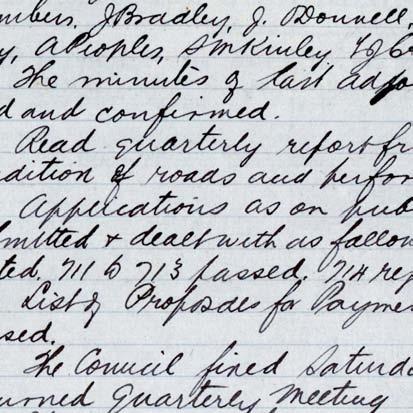 mbers, J Bradley, J. O'Donnell,
y, A Peoples, S McKinley & J C
The minutes of last adjo
d and confirmed.
Read quarterly report fr
ndition of roads and perfor
Applications as on pub
bmitted & dealt with as follow
ted. 711 to 713 passed. 714 rej
List of Proposals for Payme
ssed.
The Council fixed Saturda
urned Quarterly Meeting